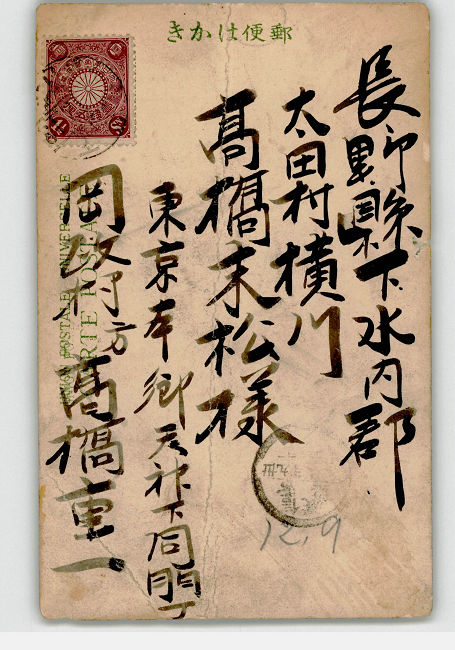 郵便はかき
長野縣下水内郡
太田村横川
高橋末松様
東京本郷天神下同朋丁
岡政村方
高橋重一
UNION POSTALE UNIVERSELLE
CARTE POSTALE
12.9